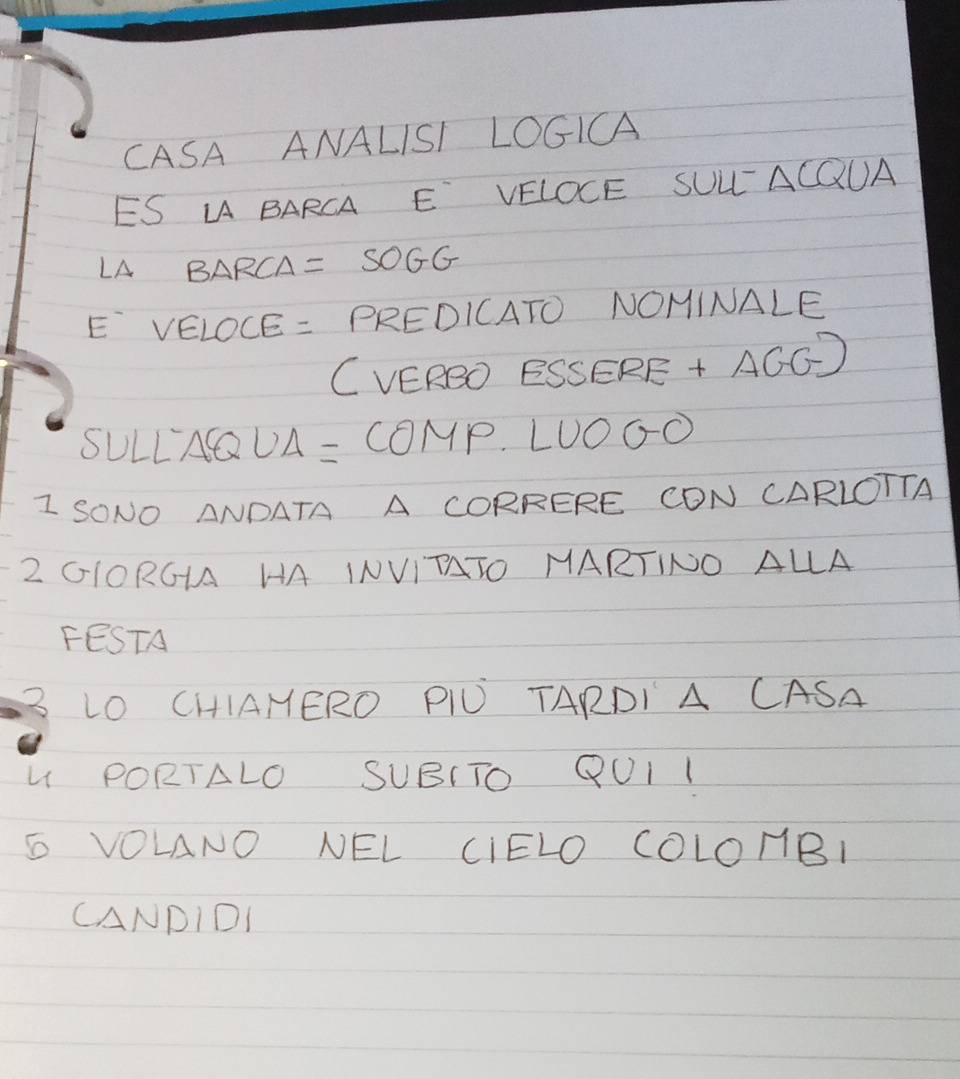 CASA ANALISI LOGICA
ES LA BARCA E' VELOCE SULL'ACQUA
LA BARCA = SOGG
E' VELOCE = PREDICATO NOMINALE
(VERBO ESSERE + AGG)
SULL'ACQUA = COMP. LUOGO
1 SONO ANDATA A CORRERE CON CARLOTTA
2 GIORGIA HA INVITATO MARTINO ALLA
FESTA
3 LO CHIAMERO PIÙ TARDI A CASA
4 PORTALO SUBITO QUI!
5 VOLANO NEL CIELO COLOMBI
CANDIDI